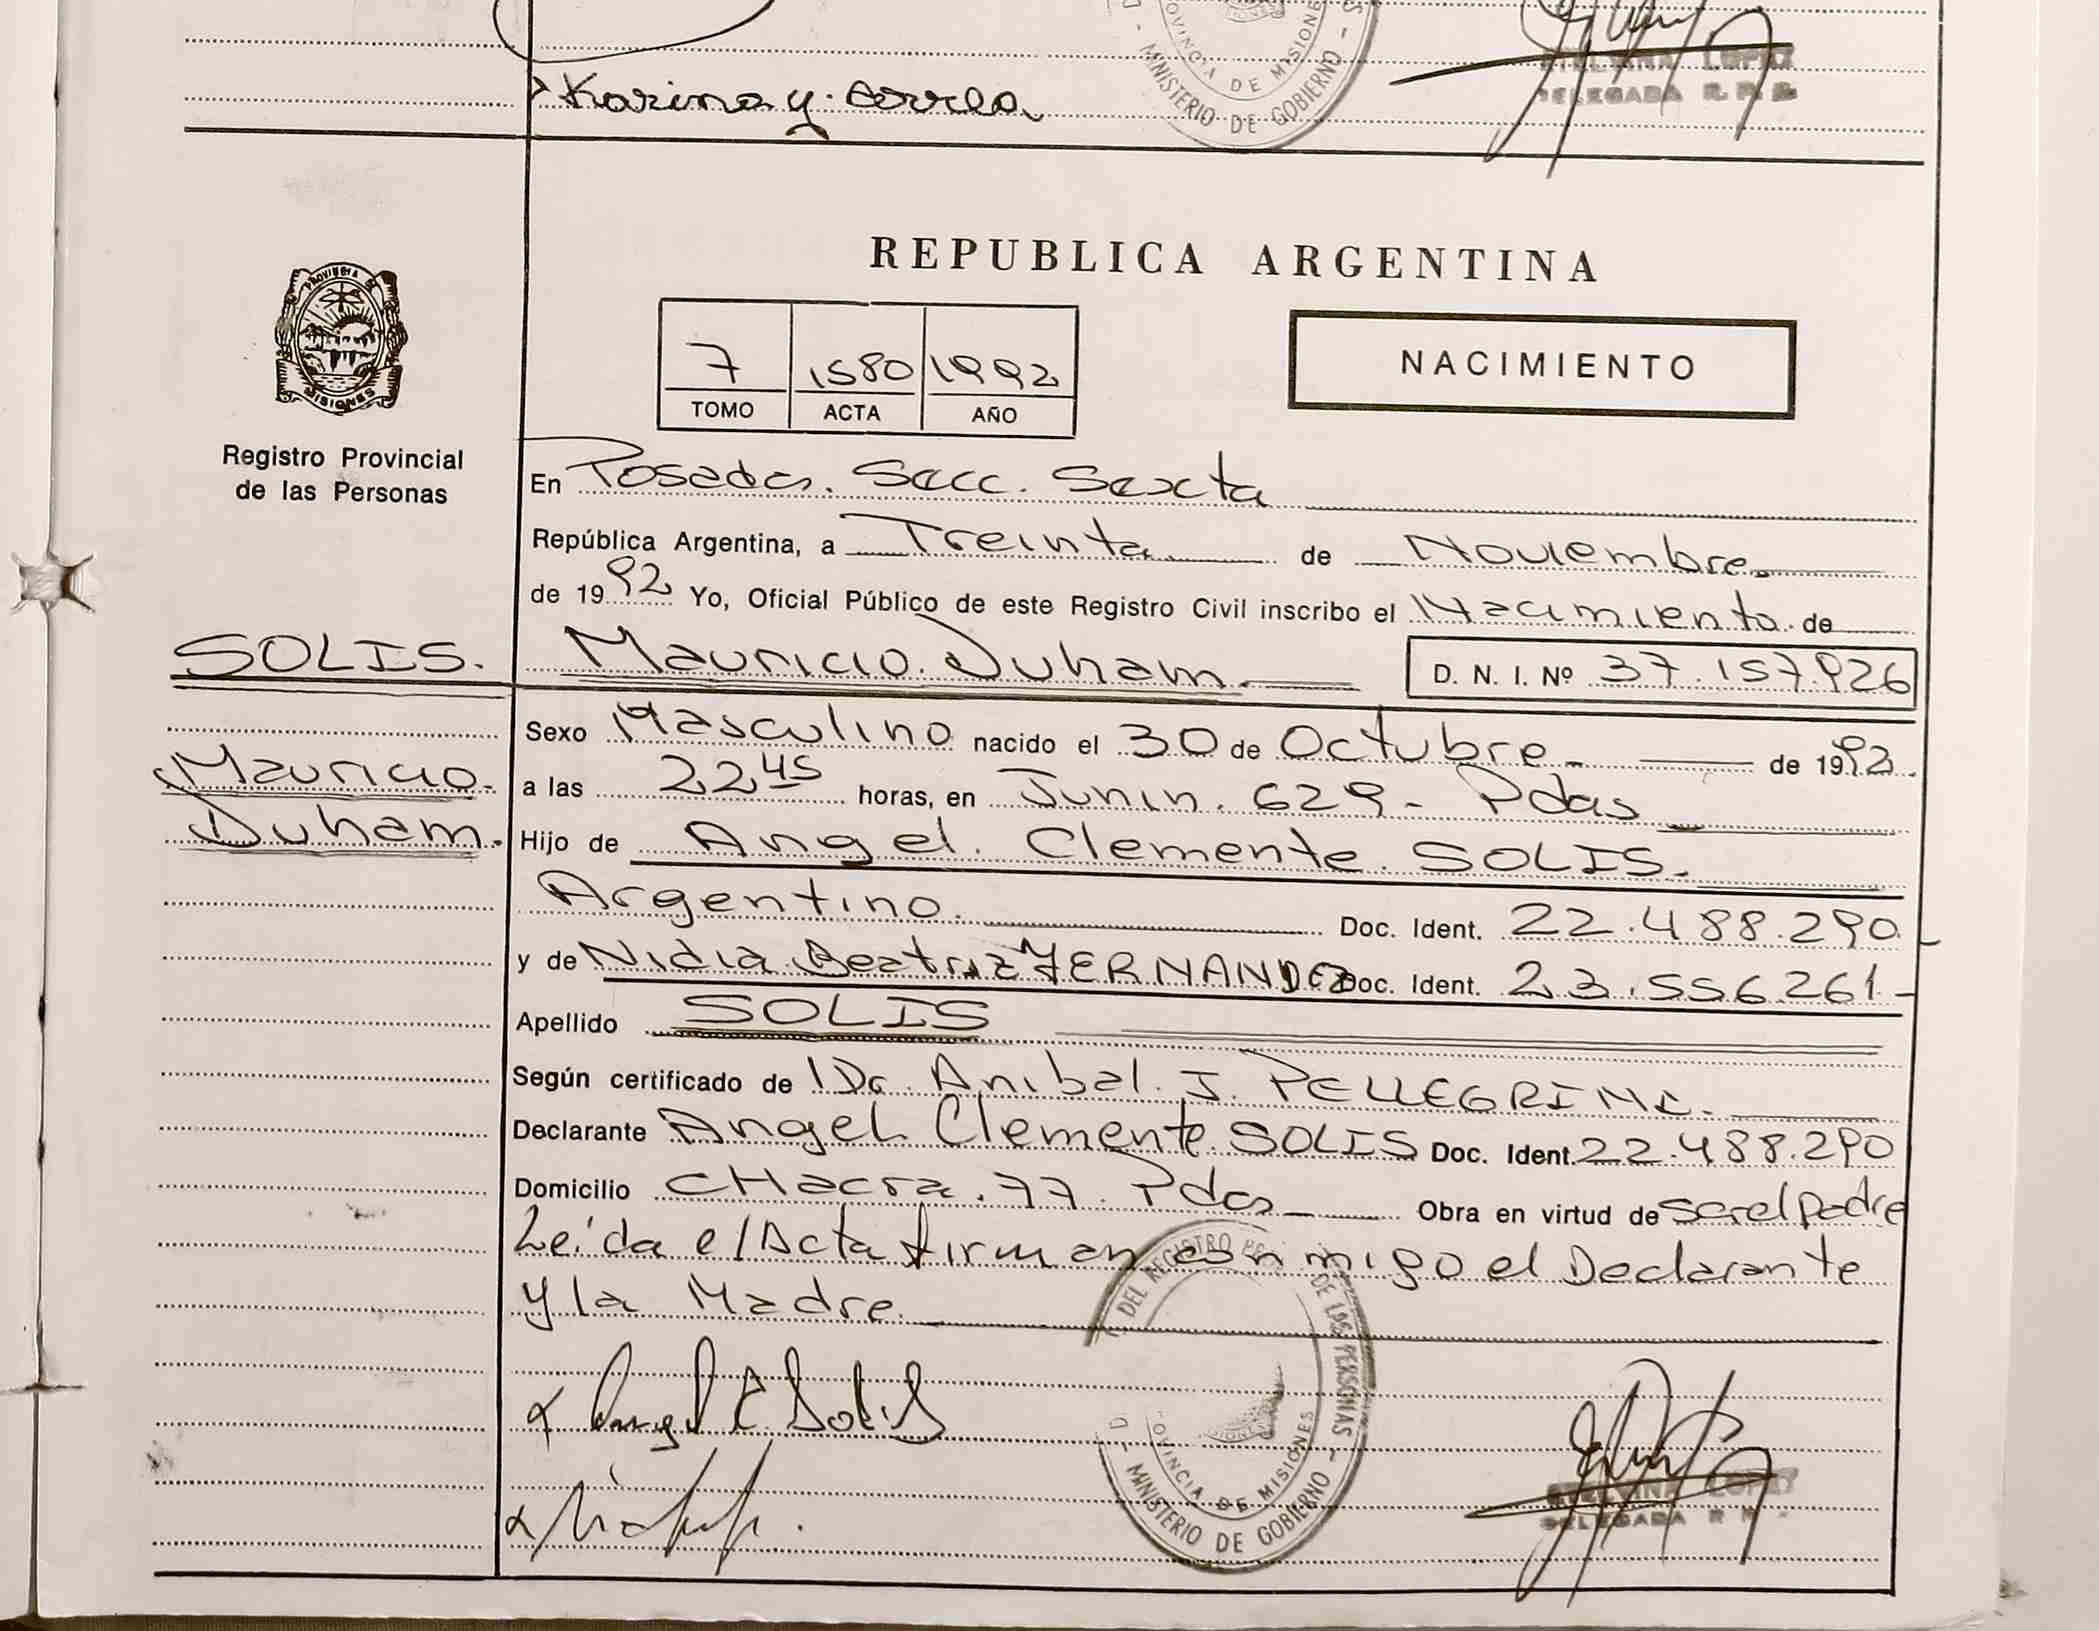 Karina y. Correa
PROVINCIA DE MISIONES
MINISTERIO DE GOBIERNO
LOPEZ
DELEGADA R. P.
REPUBLICA ARGENTINA
PROVINCIA DE
MISIONES
7 1580 1992
TOMO ACTA AÑO
NACIMIENTO
Registro Provincial
de las Personas
En Posadas. Secc. Sexta
República Argentina, a Treinta de Noviembre
de 1992 Yo, Oficial Público de este Registro Civil inscribo el Nacimiento de
SOLIS. Mauricio Duham D. N. I. Nº 37.157.926
Sexo Masculino nacido el 30 de Octubre de 1992.
Mauricio
Duham.
a las 22 45 horas, en Junin. 629 - Pdas
Hijo de Angel. Clemente. SOLIS.
Argentino. Doc. Ident. 22.488.290
y de Nidia Beatriz FERNANDEZ Doc. Ident. 23.556.261-
Apellido SOLIS
Según certificado de Dr. Anibal. J. PELLEGRINI.
Declarante Angel Clemente SOLIS Doc. Ident. 22.488.290
Domicilio CHacra. 77. Pdas Obra en virtud de ser el padre
Leída el Acta firman conmigo el Declarante
y la Madre.
DEL REGISTRO DE LAS PERSONAS
PROVINCIA DE MISIONES
MINISTERIO DE GOBIERNO
Angel C. Solis
LOPEZ
DELEGADA R. P.